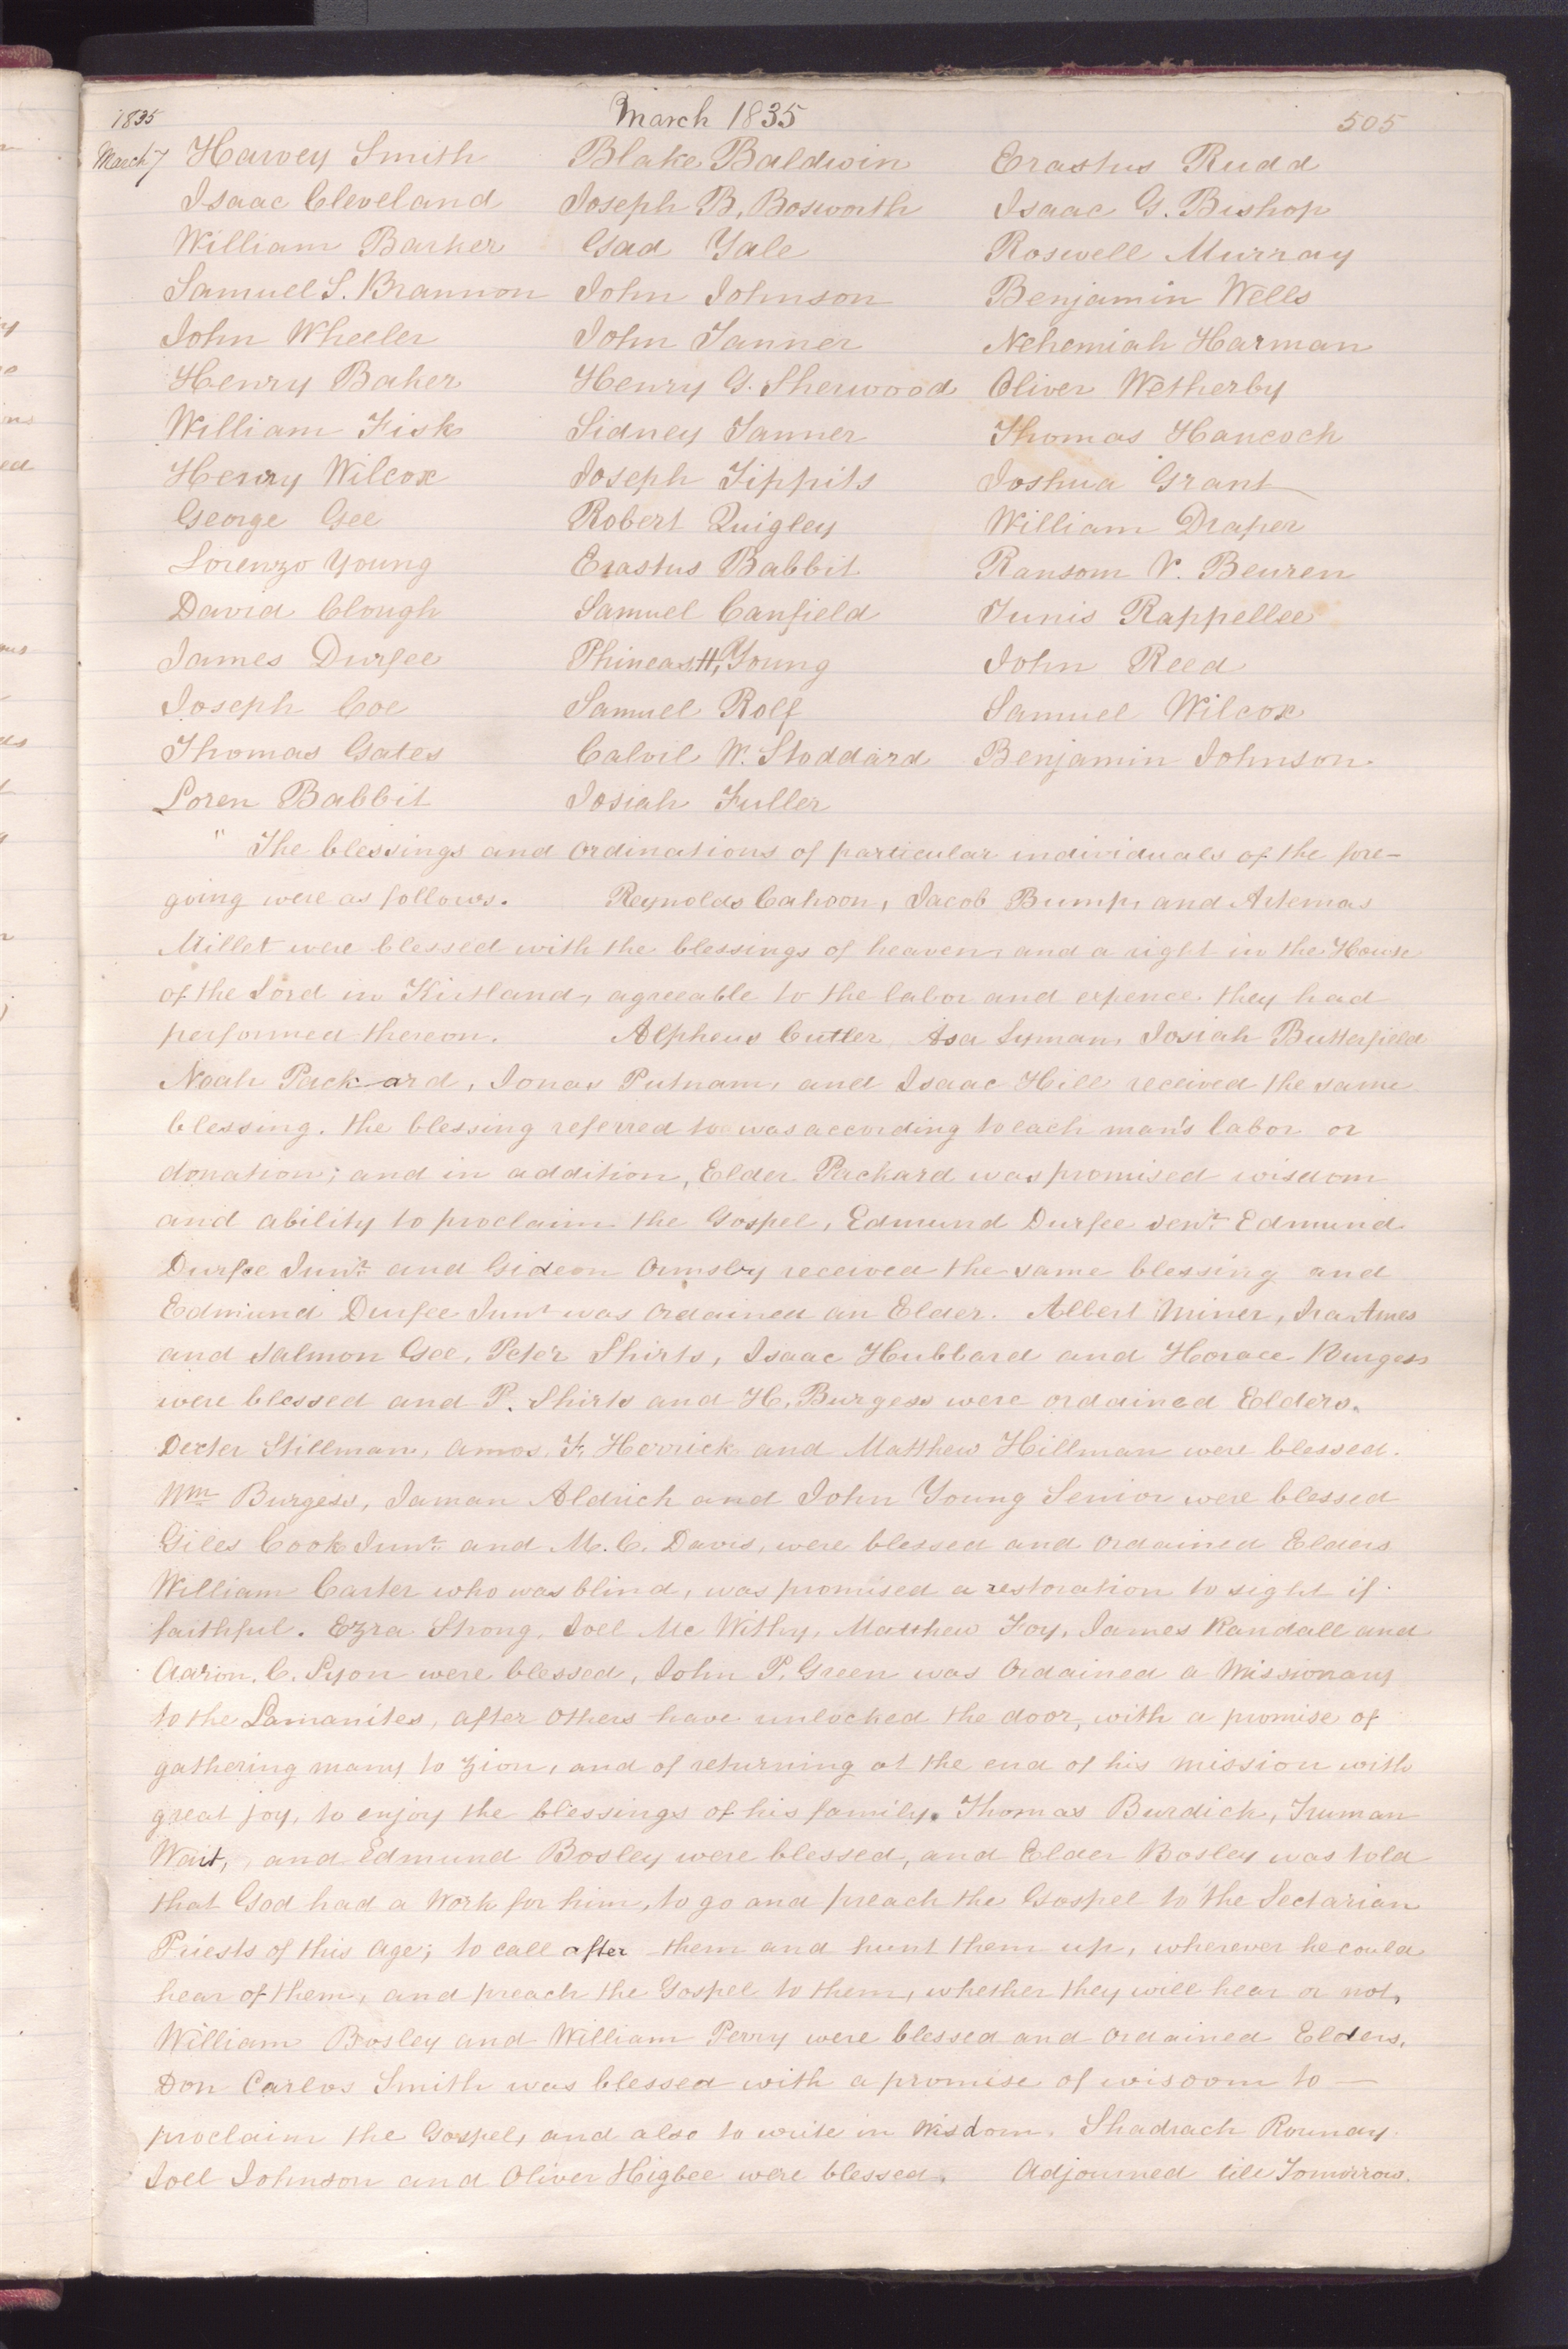 1835 March 1835 505
March 7 Harvey Smith Blake Baldwin Erastus Rudd
Isaac Cleveland Joseph B. Bosworth Isaac G. Bishop
William Barker Gad Yale Roswell Murray
Samuel S. Brannon John Johnson Benjamin Wells
John Wheeler John Tanner Nehemiah Harman
Henry Baker Henry G. Sherwood Oliver Wetherby
William Fisk Sidney Tanner Thomas Hancock
Henry Wilcox Joseph Tippits Joshua Grant
George Gee Robert Quigley William Draper
Lorenzo Young Erastus Babbit Ransom V. Beuren
David Clough Samuel Canfield Tunis Rappellee
James Durfee Phineas H. Young John Reed
Joseph Coe Samuel Rolf Samuel Wilcox
Thomas Gates Calvil W. Stoddard Benjamin Johnson.
Loren Babbit Josiah Fuller
" The blessings and ordinations of particular individuals of the fore-
going were as follows. Reynolds Cahoon, Jacob Bump, and Artemas
Millet were blessed with the blessings of heaven, and a right in the House
of the Lord in Kirtland, agreeable to the labor and expence they had
performed thereon. Alpheus Cutler, Asa Lyman, Josiah Butterfield
Noah Packard, Jonas Putnam, and Isaac Hill received the same
blessing. the blessing referred to was according to each man's labor or
donation; and in addition, Elder Packard was promised wisdom
and ability to proclaim the Gospel, Edmund Durfee Senr. Edmund
Durfee Junr. and Gideon Ormsby received the same blessing and
Edmund Durfee Junr was ordained an Elder. Albert Miner, Ira Ames
and Salmon Gee, Peter Shirts, Isaac Hubbard and Horace Burgess
were blessed and P. Shirts and H. Burgess were ordained Elders.
Dexter Stillman, Amos. F. Herrick and Matthew Hillman were blessed.
Wm Burgess, Jaman Aldrich and John Young Senior were blessed
Giles Cook Junr. and M. C. Davis, were blessed and ordained Elders
William Carter who was blind, was promised a restoration to sight if
faithful. Ezra Strong, Joel Mc Withy, Matthew Foy, James Randall and
Aaron. C. Lyon were blessed, John P. Green was Ordained a Missionary
to the Lamanites, after others have unlocked the door, with a promise of
gathering many to Zion, and of returning at the end of his mission with
great joy, to enjoy the blessings of his family. Thomas Burdick, Truman
Wait, and Edmund Bosley were blessed, and Elder Bosley was told
that God had a Work for him, to go and preach the Gospel to the Sectarian
Priests of this Age; to call after them and hunt them up, wherever he could
hear of them, and preach the Gospel to them, whether they will hear or not,
William Bosley and William Perry were blessed and ordained Elders.
Don Carlos Smith was blessed with a promise of wisdom to —
proclaim the Gospel, and also to write in Wisdom. Shadrach Rounay
Joel Johnson and Oliver Higbee were blessed. Adjourned till Tomorrow.